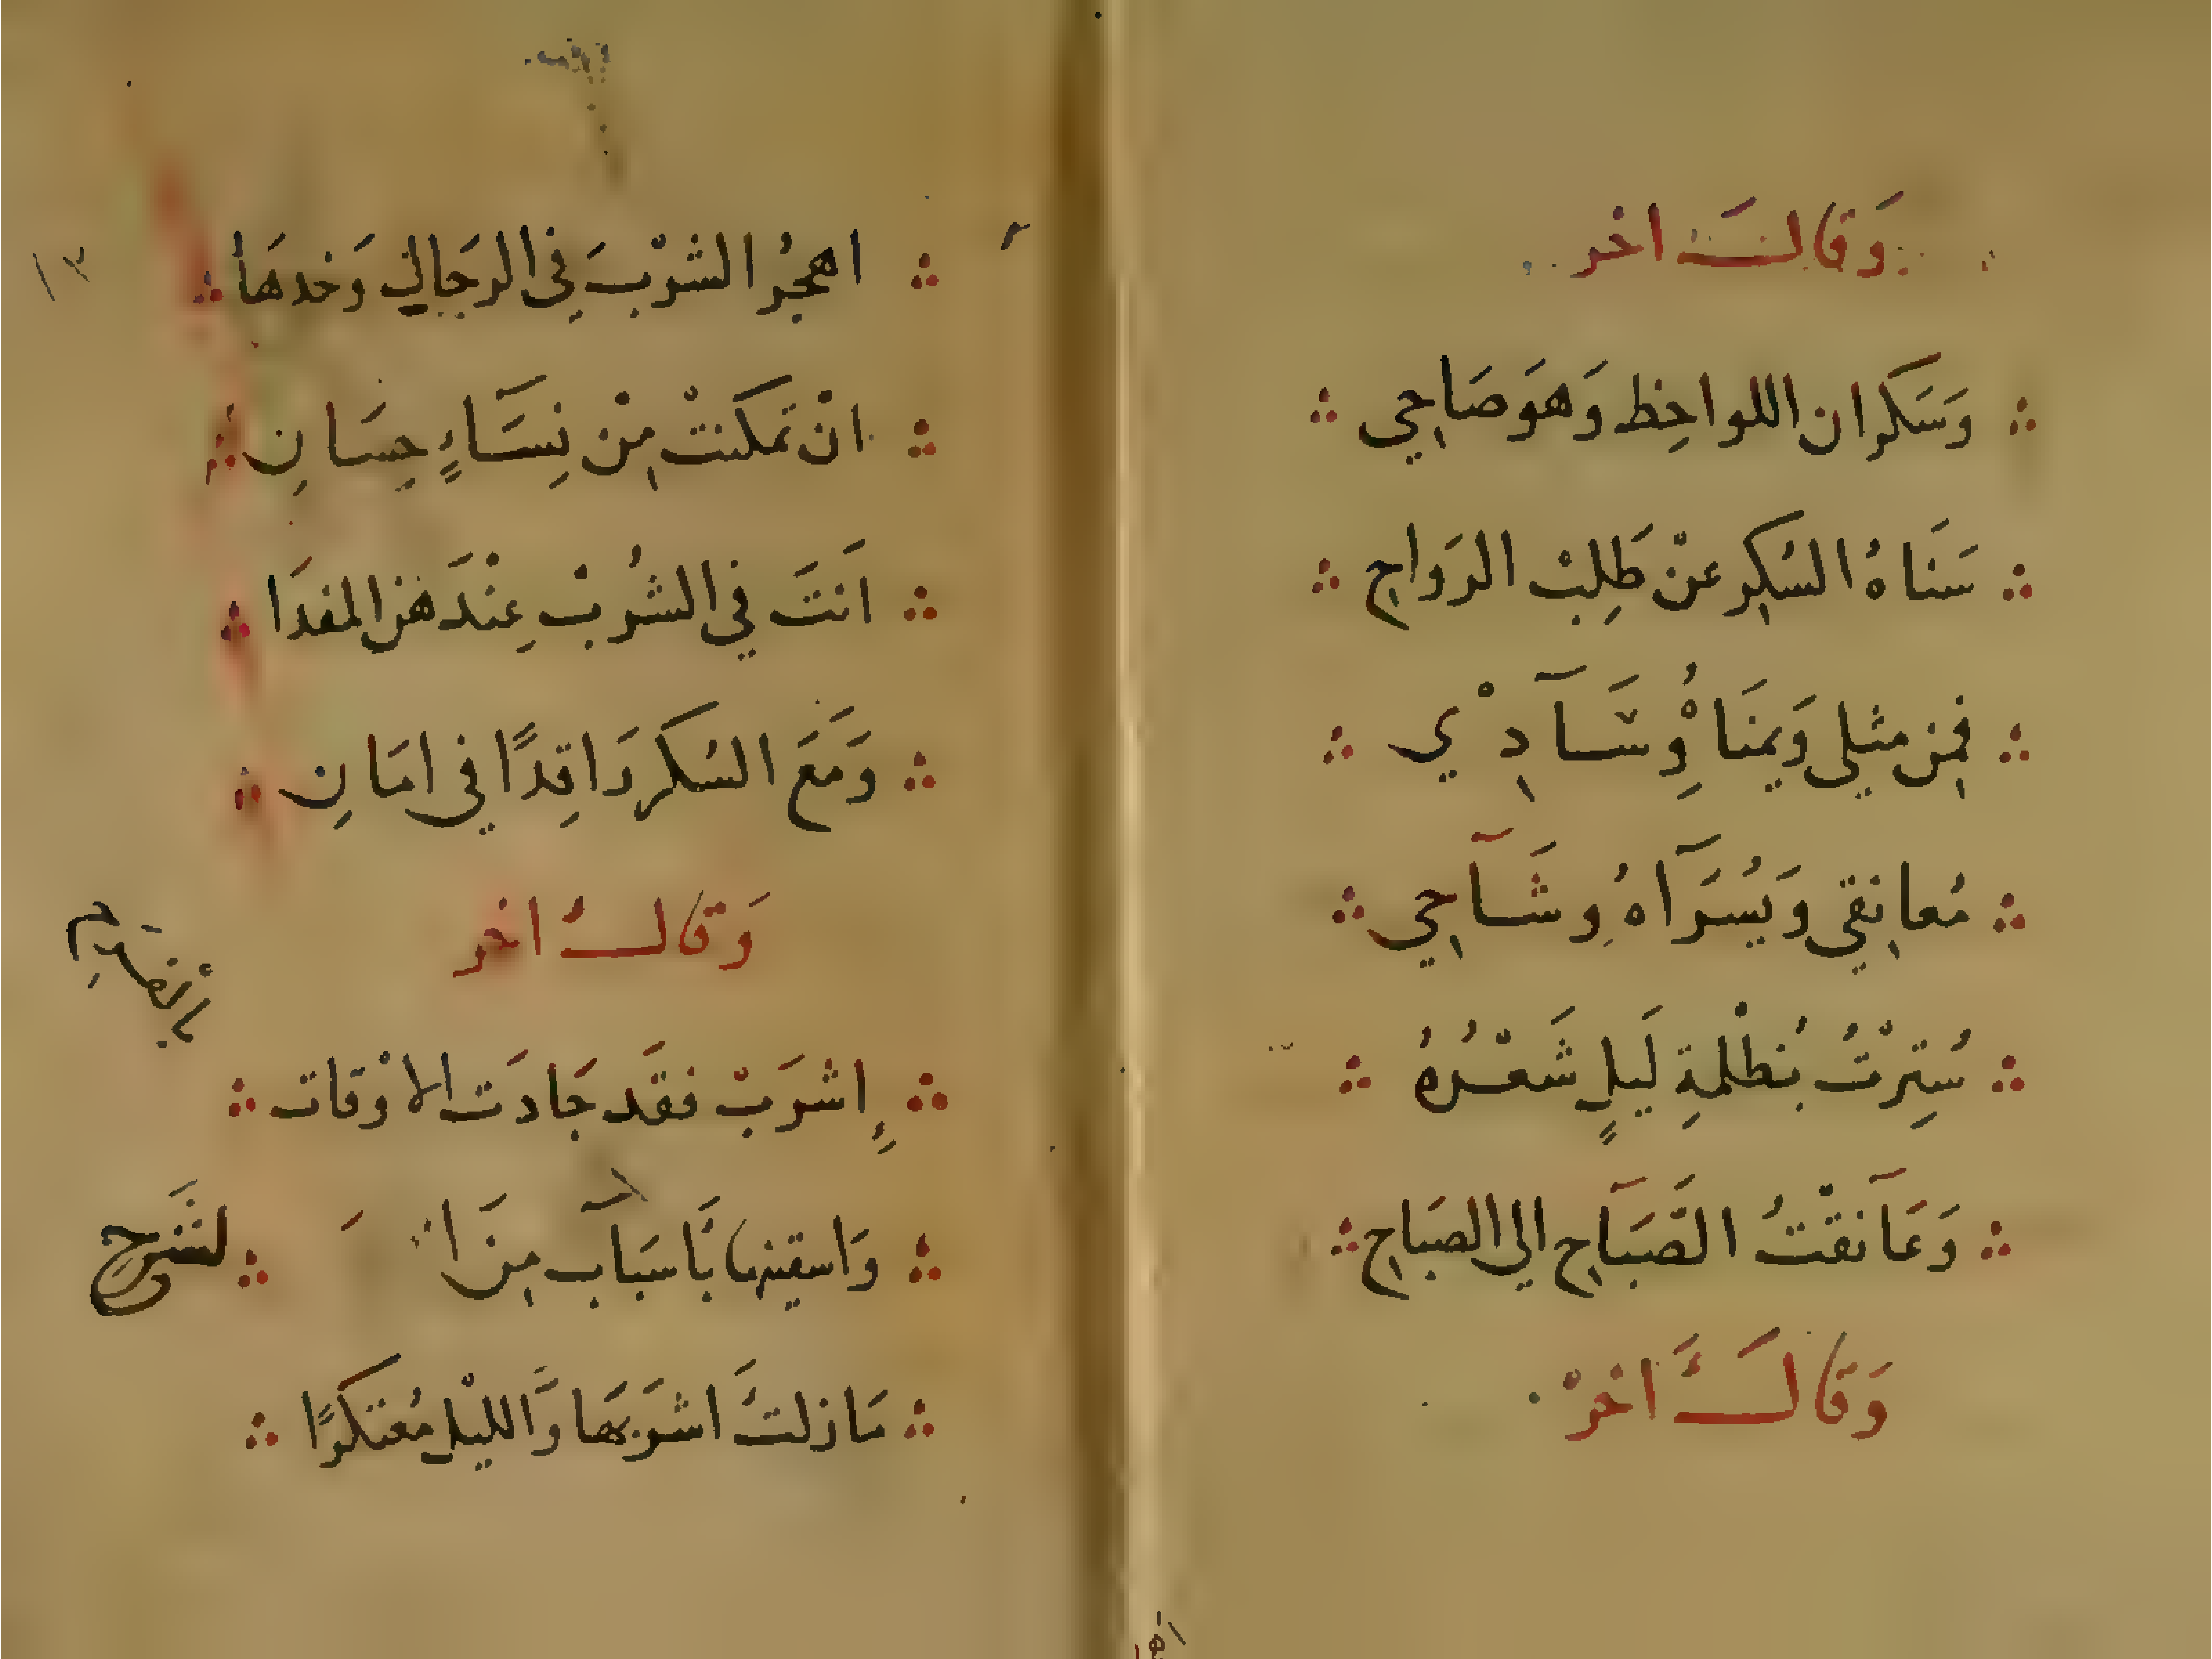 وَقَالَ اخر
وَسَكران اللواحِظ وَهوَ صَاحِي
سَنَاهُ السُكِر عنّ طَلِبْ الرَوَاحِ
فمِن مثلِي وَيمنَاهُ وِسَآدِي
مُعانِقِي وَيُسرَآهُ وِشَآحِي
سُتِرْتُ بُظْلمةِ لَيلٍ شَعْرُهُ
وَعَآنَقْتُ الصَّبَآحِ الي الصَباحِ
وَقَالَ اخرْ
١٣
اهجُر الشرْبَ في الرجَالِ وَخدهَا
انْ تمكنتْ مِنْ نِسَآءٍ حِسَانِ
اَنتَ في الشُربْ عِنْدَ هذا لمفدَا
وَمَعَ السُكر رَاقِدًا في امَانِ
وَقَالَ اخر
إِشرَبْ فقَد جَادَت الاوْقات
وَاسقينها بَاسبَآب مِنَ
لشرح
مَازلتَ اشرَبهَا وَالليْل مُعتكرًا
اهجر